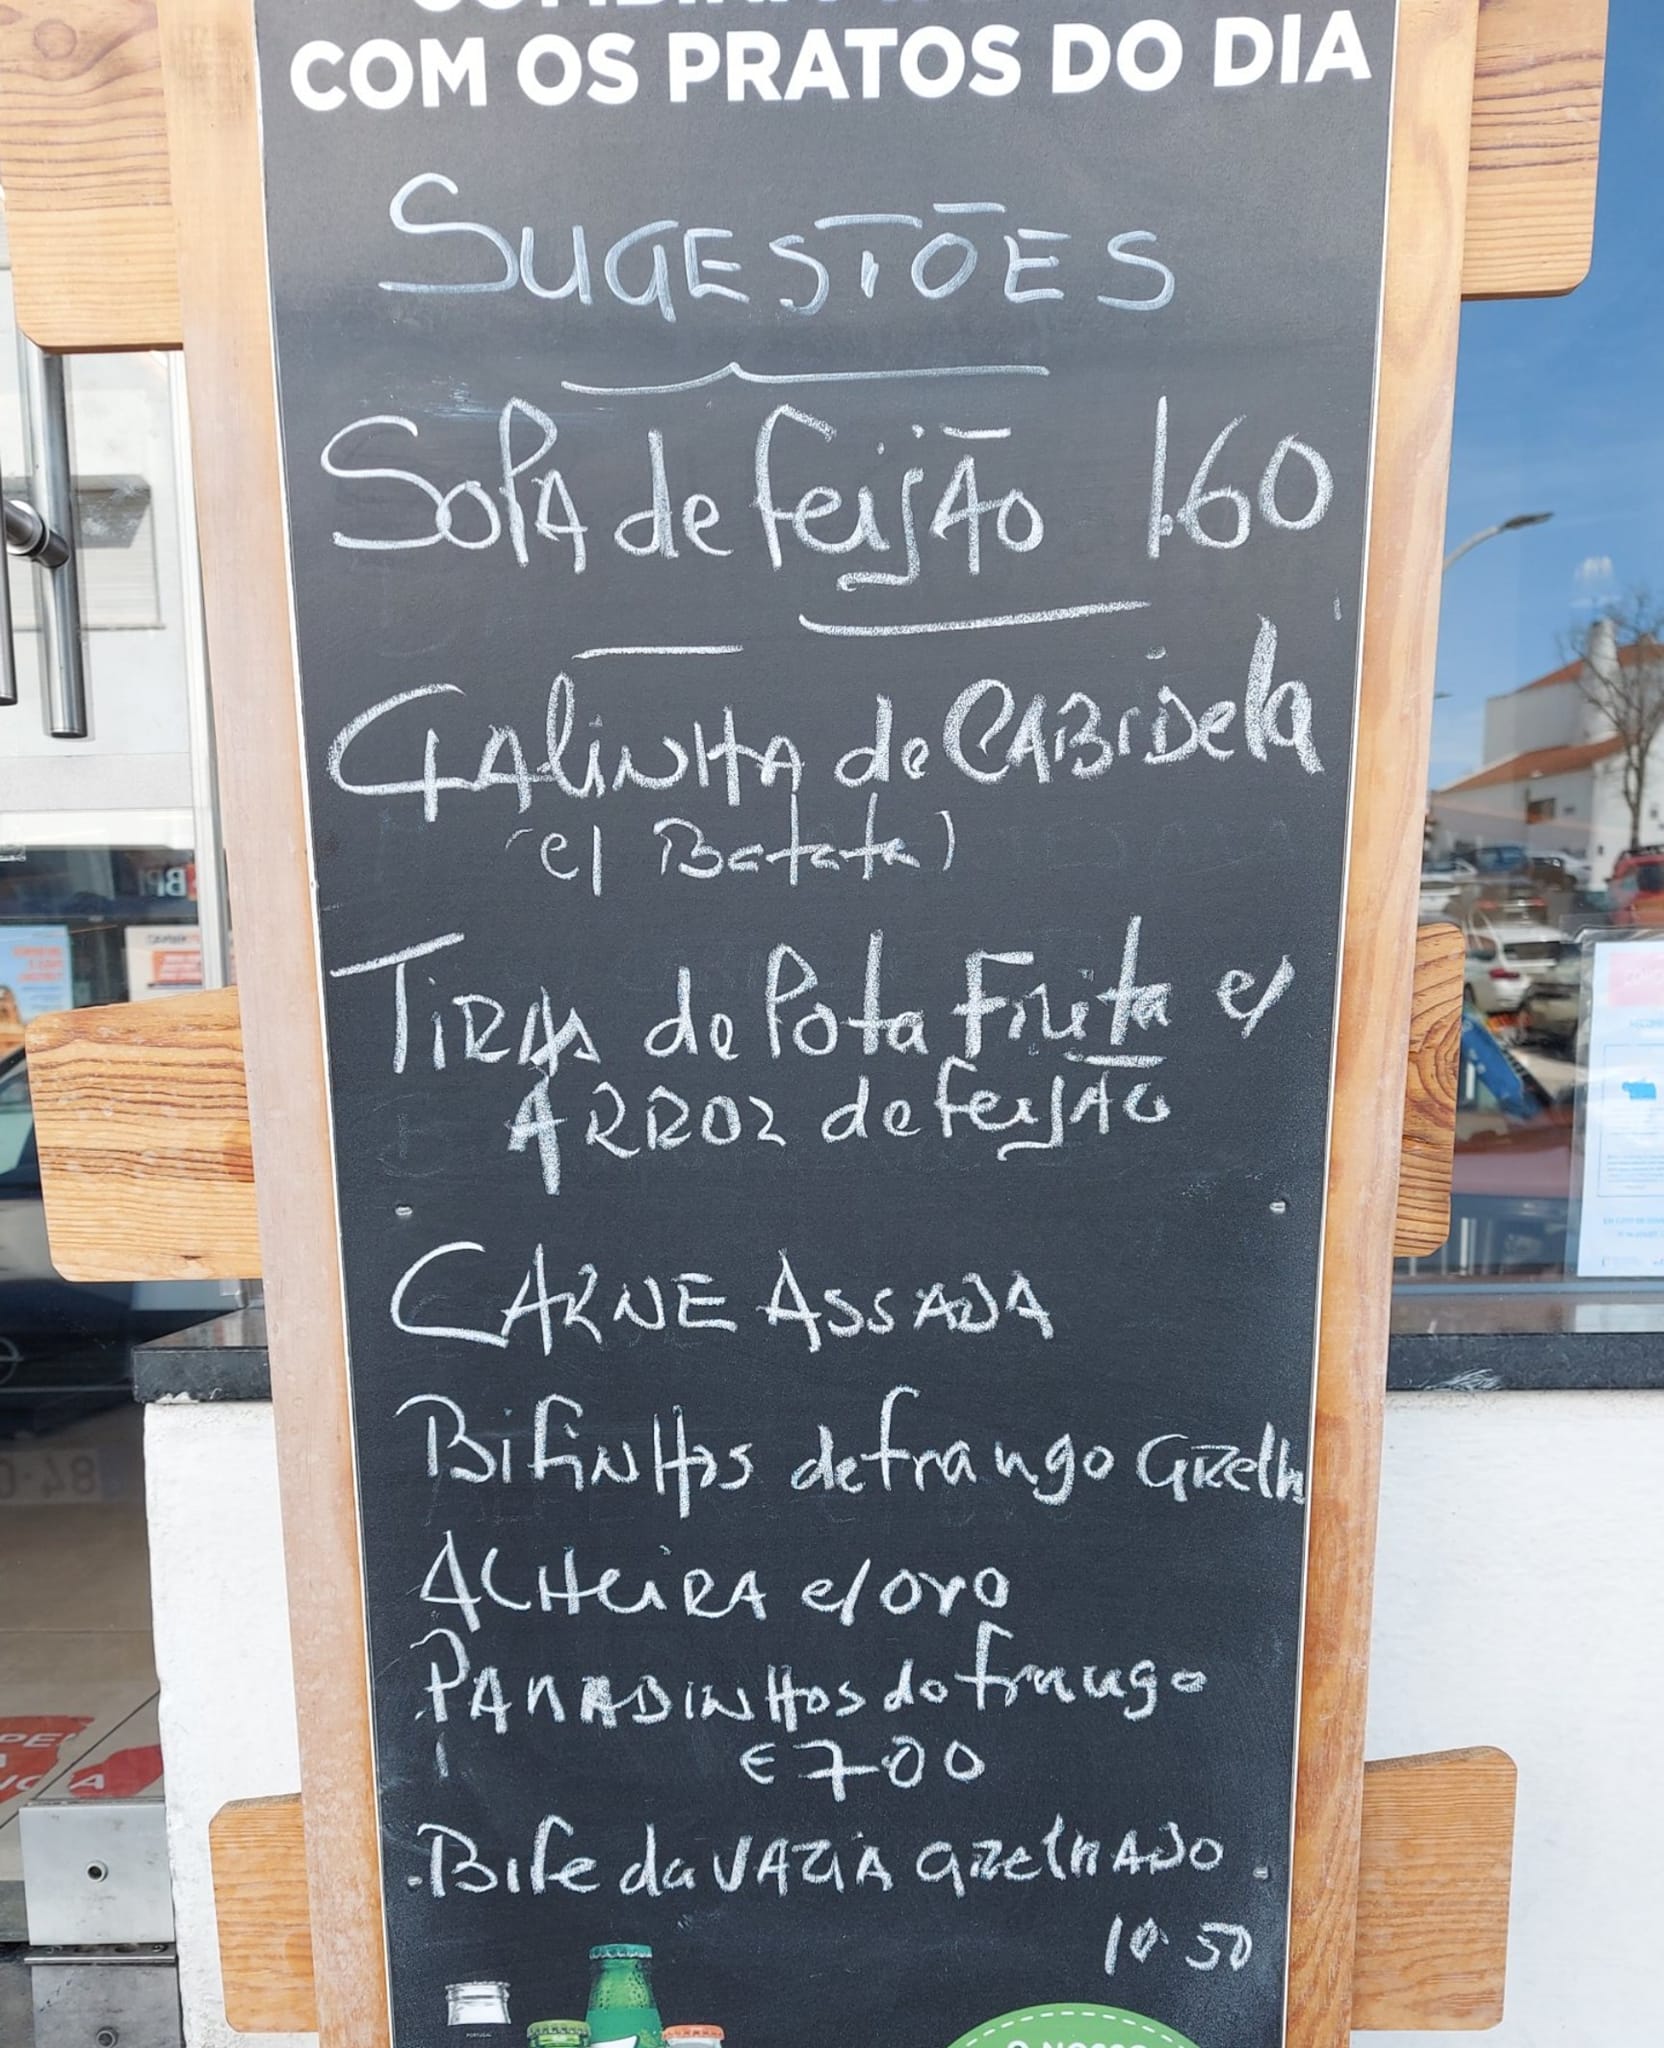 COM OS PRATOS DO DIA
SUGESTÕES
SOPA de feijÃo 1.60
GAliNHA de CABIDela
(c/ Batata)
TIRAS de Pota Frita c/
ARROZ de feijão
CARNE ASSADA
BifiNHos de frango Grelh
ALHEIRA c/ ovo
PANADINHOS de frango
€ 7.00
Bife da VAZIA grelhADO
10.50
PORTUGAL
O NOSSO